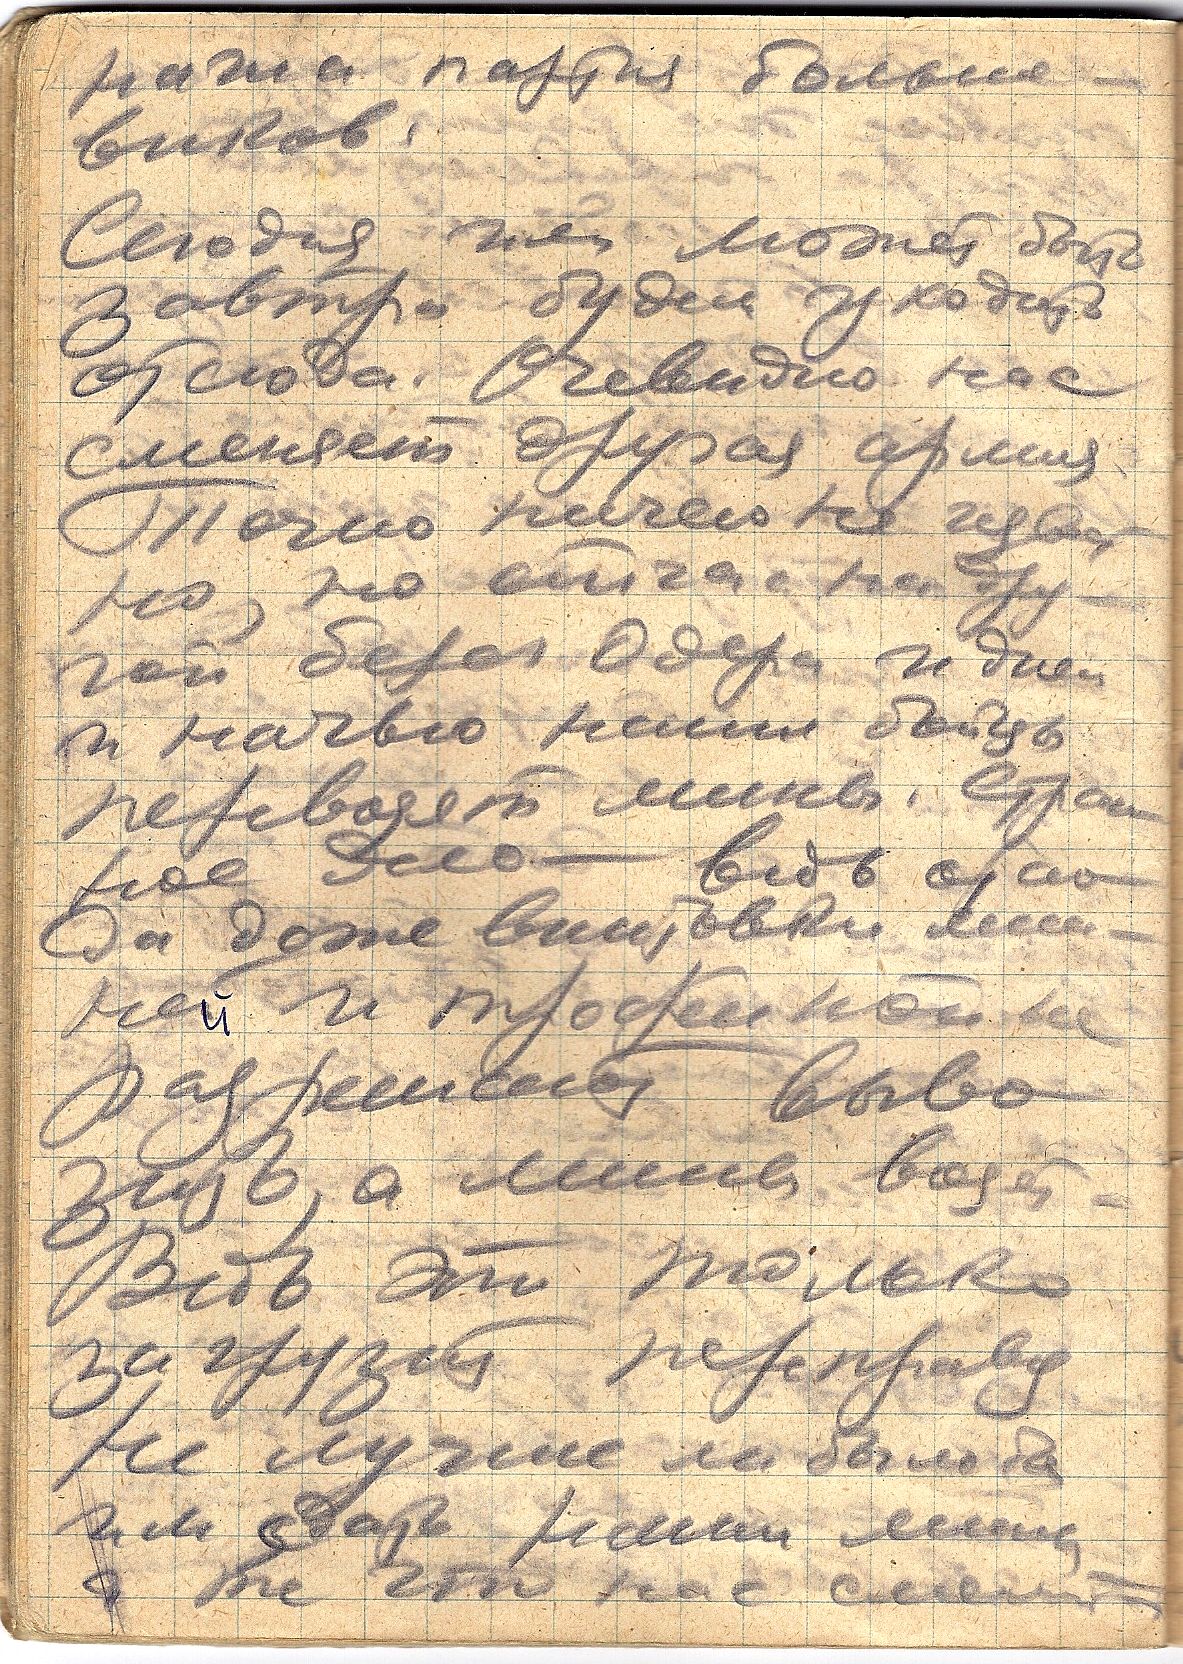 наша партия больше-
виков.
Сегодня или может быть
завтра будем уходить
отсюда. Очевидно нас
сменяет другая армия.
Точно ничего не извест-
но, но сейчас на дру-
гой берег Одера и днем
и ночью наши бойцы
перевозят мины. Стран
ное дело — ведь отсю-
да даже винтовки лиш-
ней и трофейной не
разрешают выво
зить, а мины возят -
Ведь это только
загрузит переправу
Не лучше ли было бы
им сдать наши мины
а те что нас сменят